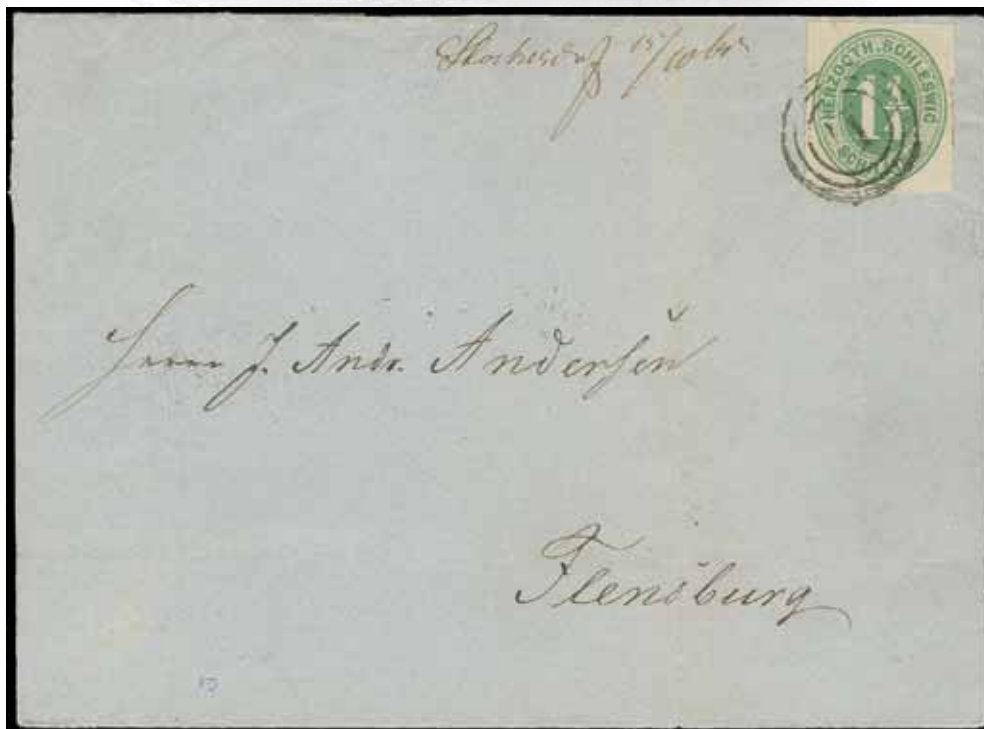 15/10 64
HERZOGTH. SCHLESWIG
1¼
SCHILLING
Herrn J. Andr. Andersen
Flensburg